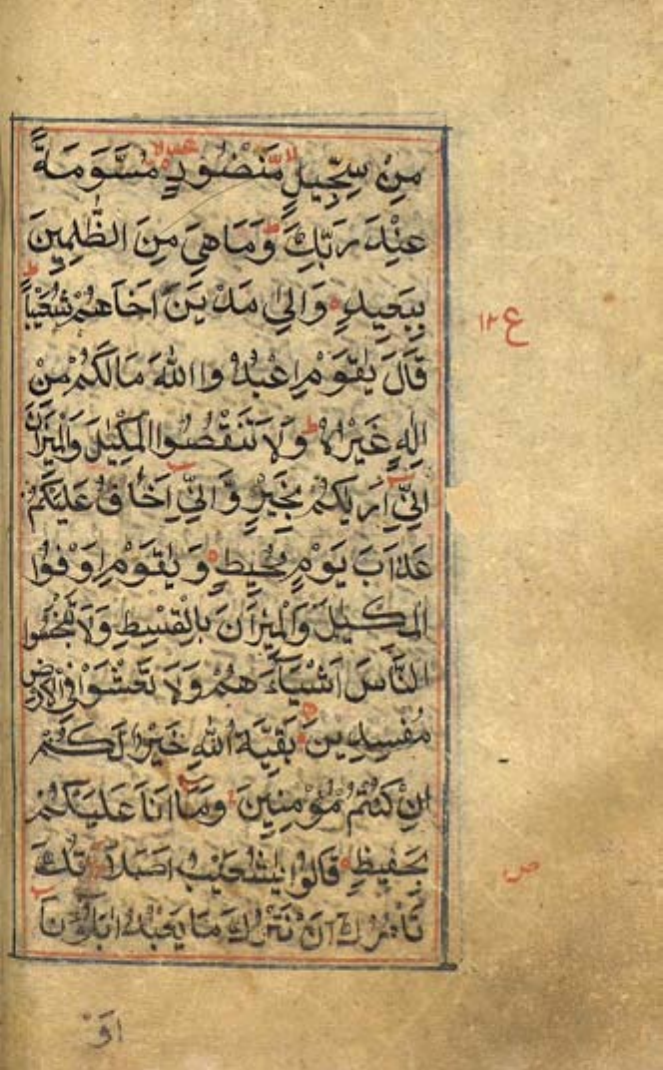 مِنْ سِجِّيلٍ مَّنْضُودٍ مُسَوَّمَةً
عِنْدَ رَبِّكَ وَمَا هِيَ مِنَ الظّٰلِمِينَ
بِبَعِيدٍ وَاِلىٰ مَدْيَنَ اَخَاهُمْ شُعَيْباً
قَالَ يٰقَوْمِ اعْبُدُوا اللّٰهَ مَالَكُمْ مِنْ
اِلٰهٍ غَيْرُهُ وَلَا تَنْقُصُوا الْمِكْيٰلَ وَالْمِيْزَانَ
اِنِّي اَرٰيكُمْ بِخَيْرٍ وَّاِنِّي اَخَافُ عَلَيْكُمْ
عَذَابَ يَوْمٍ مُحِيطٍ وَيٰقَوْمِ اَوْفُوا
الْمِكْيٰلَ وَالْمِيْزَانَ بِالْقِسْطِ وَلَا تَبْخَسُوا
النَّاسَ اَشْيَآءَهُمْ وَلَا تَعْثَوْا فِي الْاَرْضِ
مُفْسِدِينَ بَقِيَّةُ اللّٰهِ خَيْرٌ لَكُمْ
اِنْ كُنْتُمْ مُؤْمِنِينَ وَمَا اَنَا عَلَيْكُمْ
بِحَفِيظٍ قَالُوا يٰشُعَيْبُ اَصَلٰوتُكَ
تَأْمُرُكَ اَنْ نَتْرُكَ مَا يَعْبُدُ اٰبَاؤُنَا
اَوْ